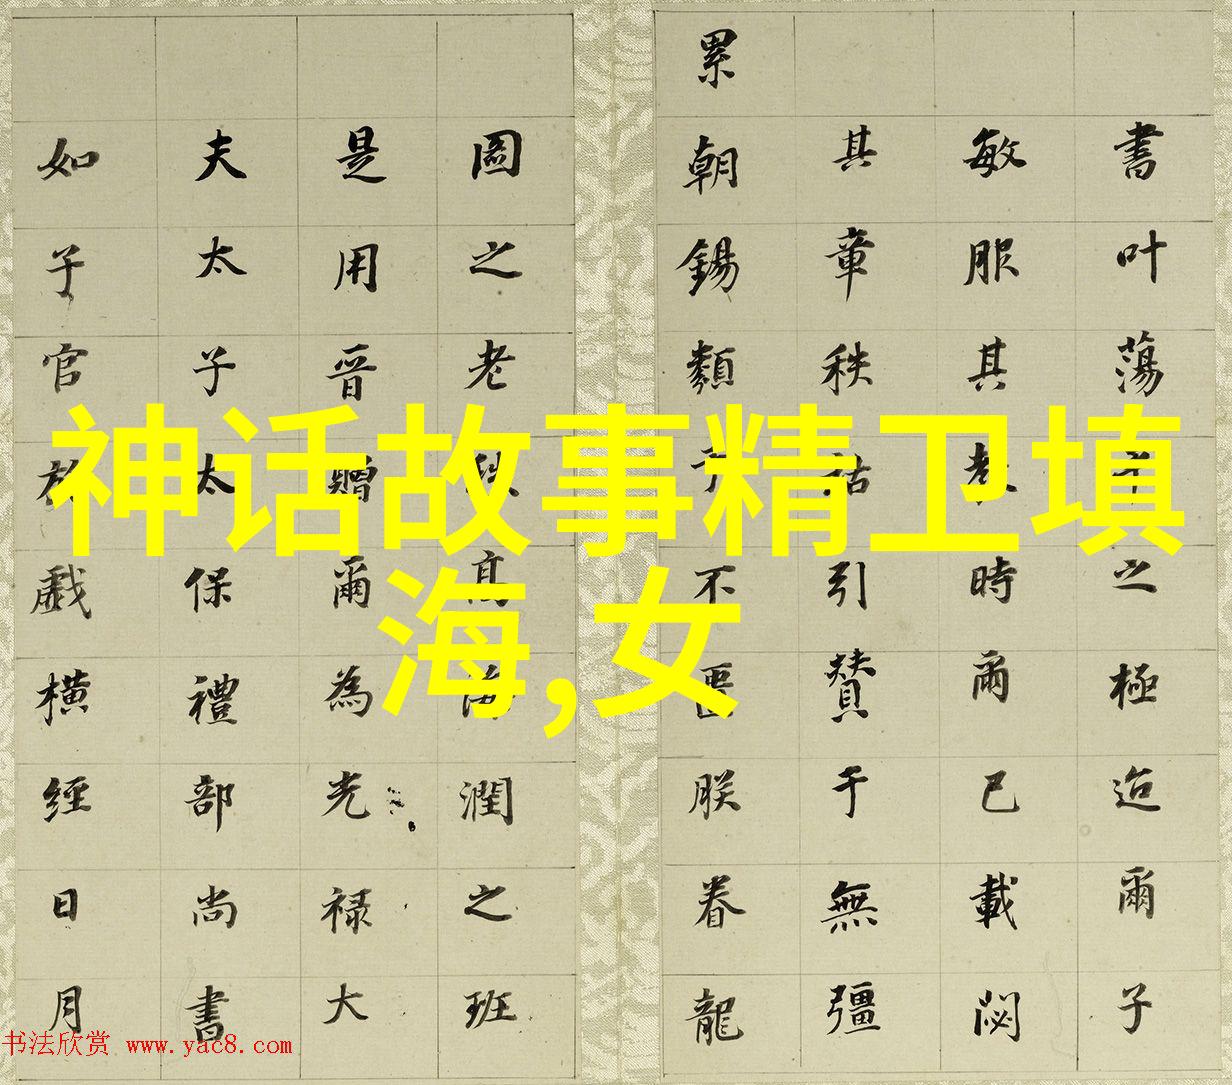 神话故事精卫填
海,女
書叶蕩平之極迨爾子
敏服其教時爾已載閟
其章秩祜引賛于無彊
累朝錫類不匱朕眷龍
圖之老秩高潤之班
是用晉贈爾為光禄大
夫太子太保禮部尚書
如子官於戲橫經日月
书法欣赏 www.yac8.com